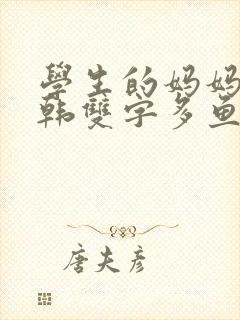 學生的妈妈
韩雙字多鱼
唐夫彦